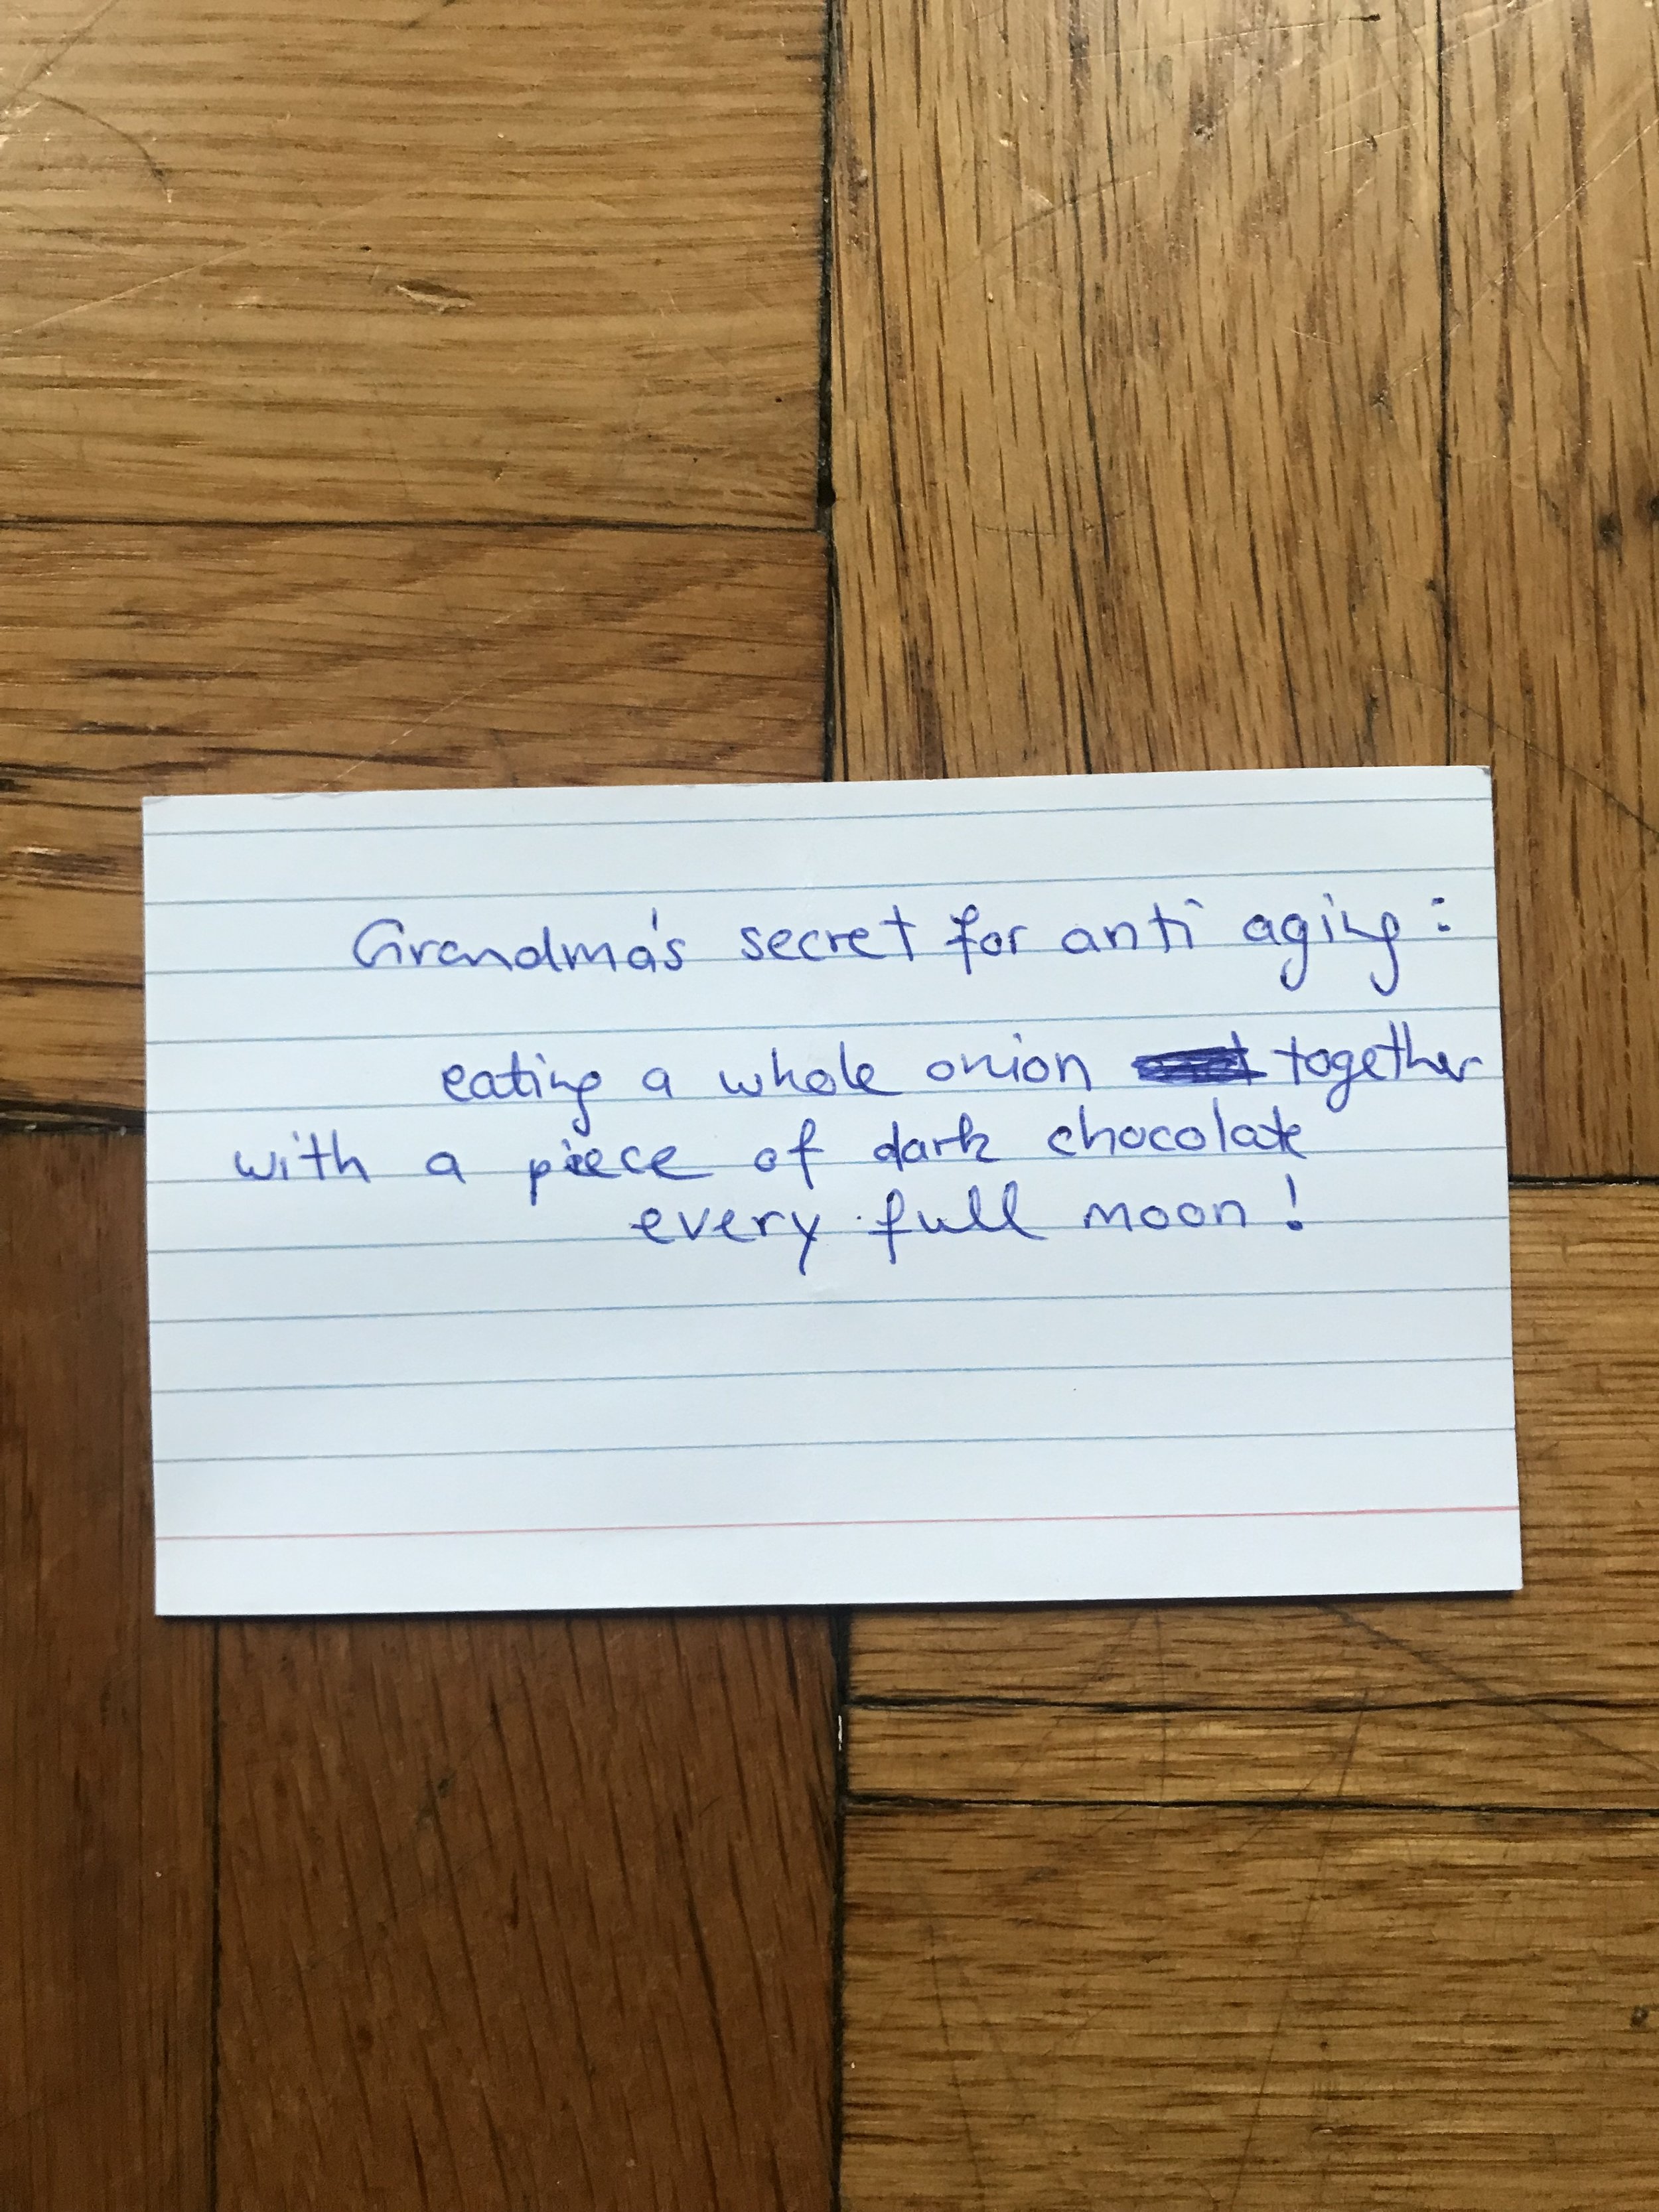 Grandma's secret for anti aging:
eating a whole onion together
with a piece of dark chocolate
every full moon!